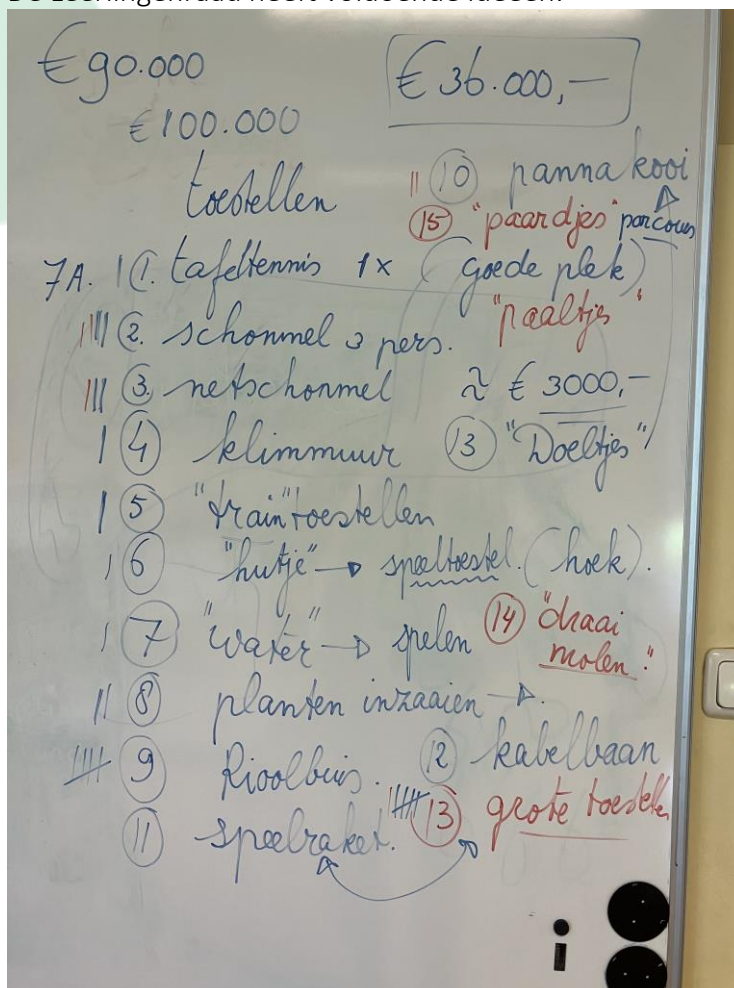 €90.000
€36.000,-
€100.000
toestellen
10 pannakooi
15 "paardjes" parcours
7A. 1. tafeltennis 1x (goede plek)
2. schommel 3 pers.
"paaltjes"
3. netschommel ≈ € 3000,-
4 klimmuur
13 "Doeltjes"
5 "train"toestellen
6 "hutje" → speeltoestel. (hoek).
7 "water" → spelen
14 "draai
molen."
8 planten inzaaien →.
9 Rioolbuis.
12 kabelbaan
11 speelraket.
13 grote toestellen